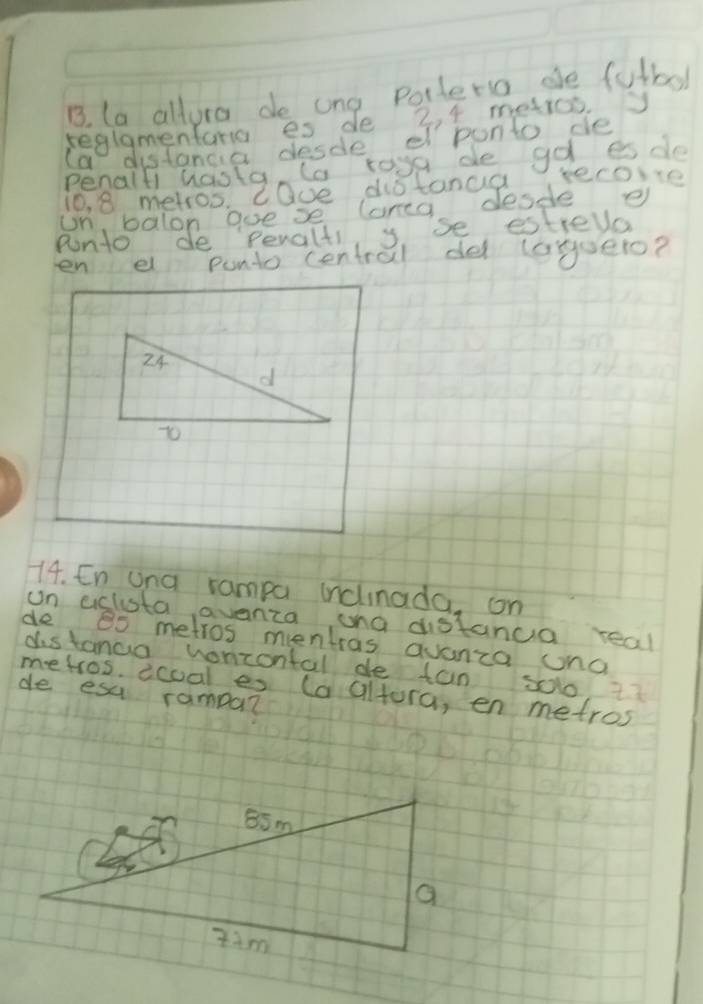 13. la altura de una Porteria de futbol
reglamentaria es de 2,4 metros. y
la distancia desde el punto de
penalti hasta la raya de gol es de
10,8 metros. ¿Que distancia recorre
un balon que se lanza desde el
punto de penalti y se estrella
en el punto central del larguero?
24
d
10
14. En una rampa inclinada, on
un ciclista avanza una distancia real
de 85 metros mientras avanza una
distancia horizontal de tan solo 77
metros. ¿cual es la altura, en metros
de esa rampa?
85m
a
77m